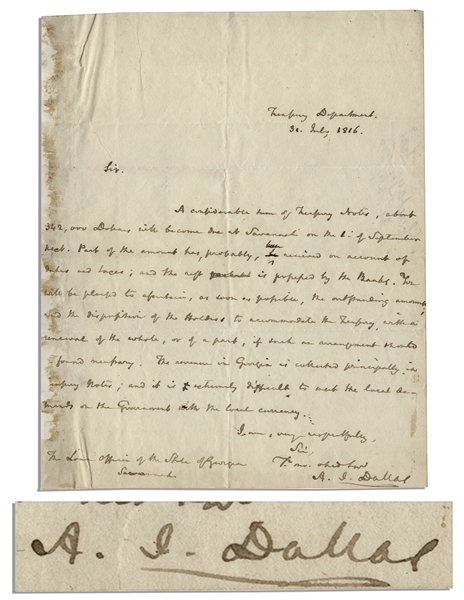 Treasury Department.
31 July 1816.
Sir.
A considerable sum of Treasury Notes, about
342,000 Dollars will become due at Savannah on the 1st of September
next. Part of the amount has, probably, been received on account of
duties and taxes; and the rest is possessed by the Banks. You
will be pleased to ascertain, as soon as possible, the outstanding amount
and the disposition of the Holders to accommodate the Treasury, with a
renewal of the whole, or of a part, if such an arrangement should
be found necessary. The revenue in Georgia is collected principally in
Treasury Notes; and it is extremely difficult to meet the local de-
mands on the Government with the local currency.
I am, very respectfully,
Sir,
Yr. mo. obed Serv
A. J. Dallas
The Loan Officer of the State of Georgia
Savannah.
A. J. Dallas